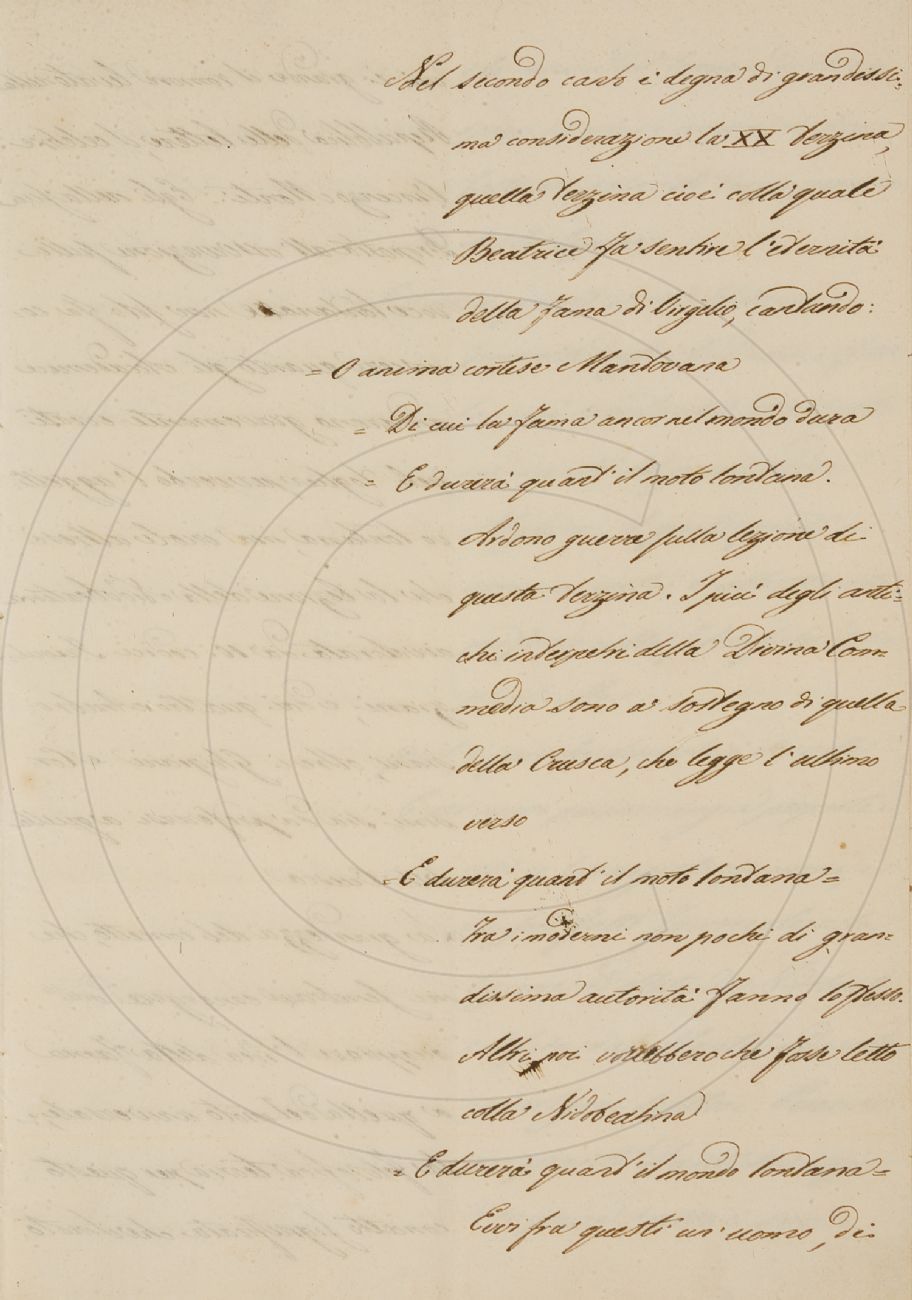 Nel secondo canto è degna di grandissi-
ma considerazione la XX terzina,
quella terzina cioè colla quale
Beatrice fa sentire l'eternità
della fama di Virgilio, cantando:
= O anima cortese Mantovana
= Di cui la fama ancor nel mondo dura
= E durerà quant' il moto lontana.
Ardono guerre sulla lezione di
questa terzina. I più degli anti-
chi interpetri della Divina Com-
media sono a sostegno di quella
della Crusca, che legge l'ultimo
verso
= E durerà quant' il moto lontana =
Tra i moderni non pochi di gran-
dissima autorità fanno lo stesso.
Altri poi vorrebbero che fosse letto
colla Nidobeatina
= E durerà quant' il mondo lontana =
Evvi fra questi un' uomo, di